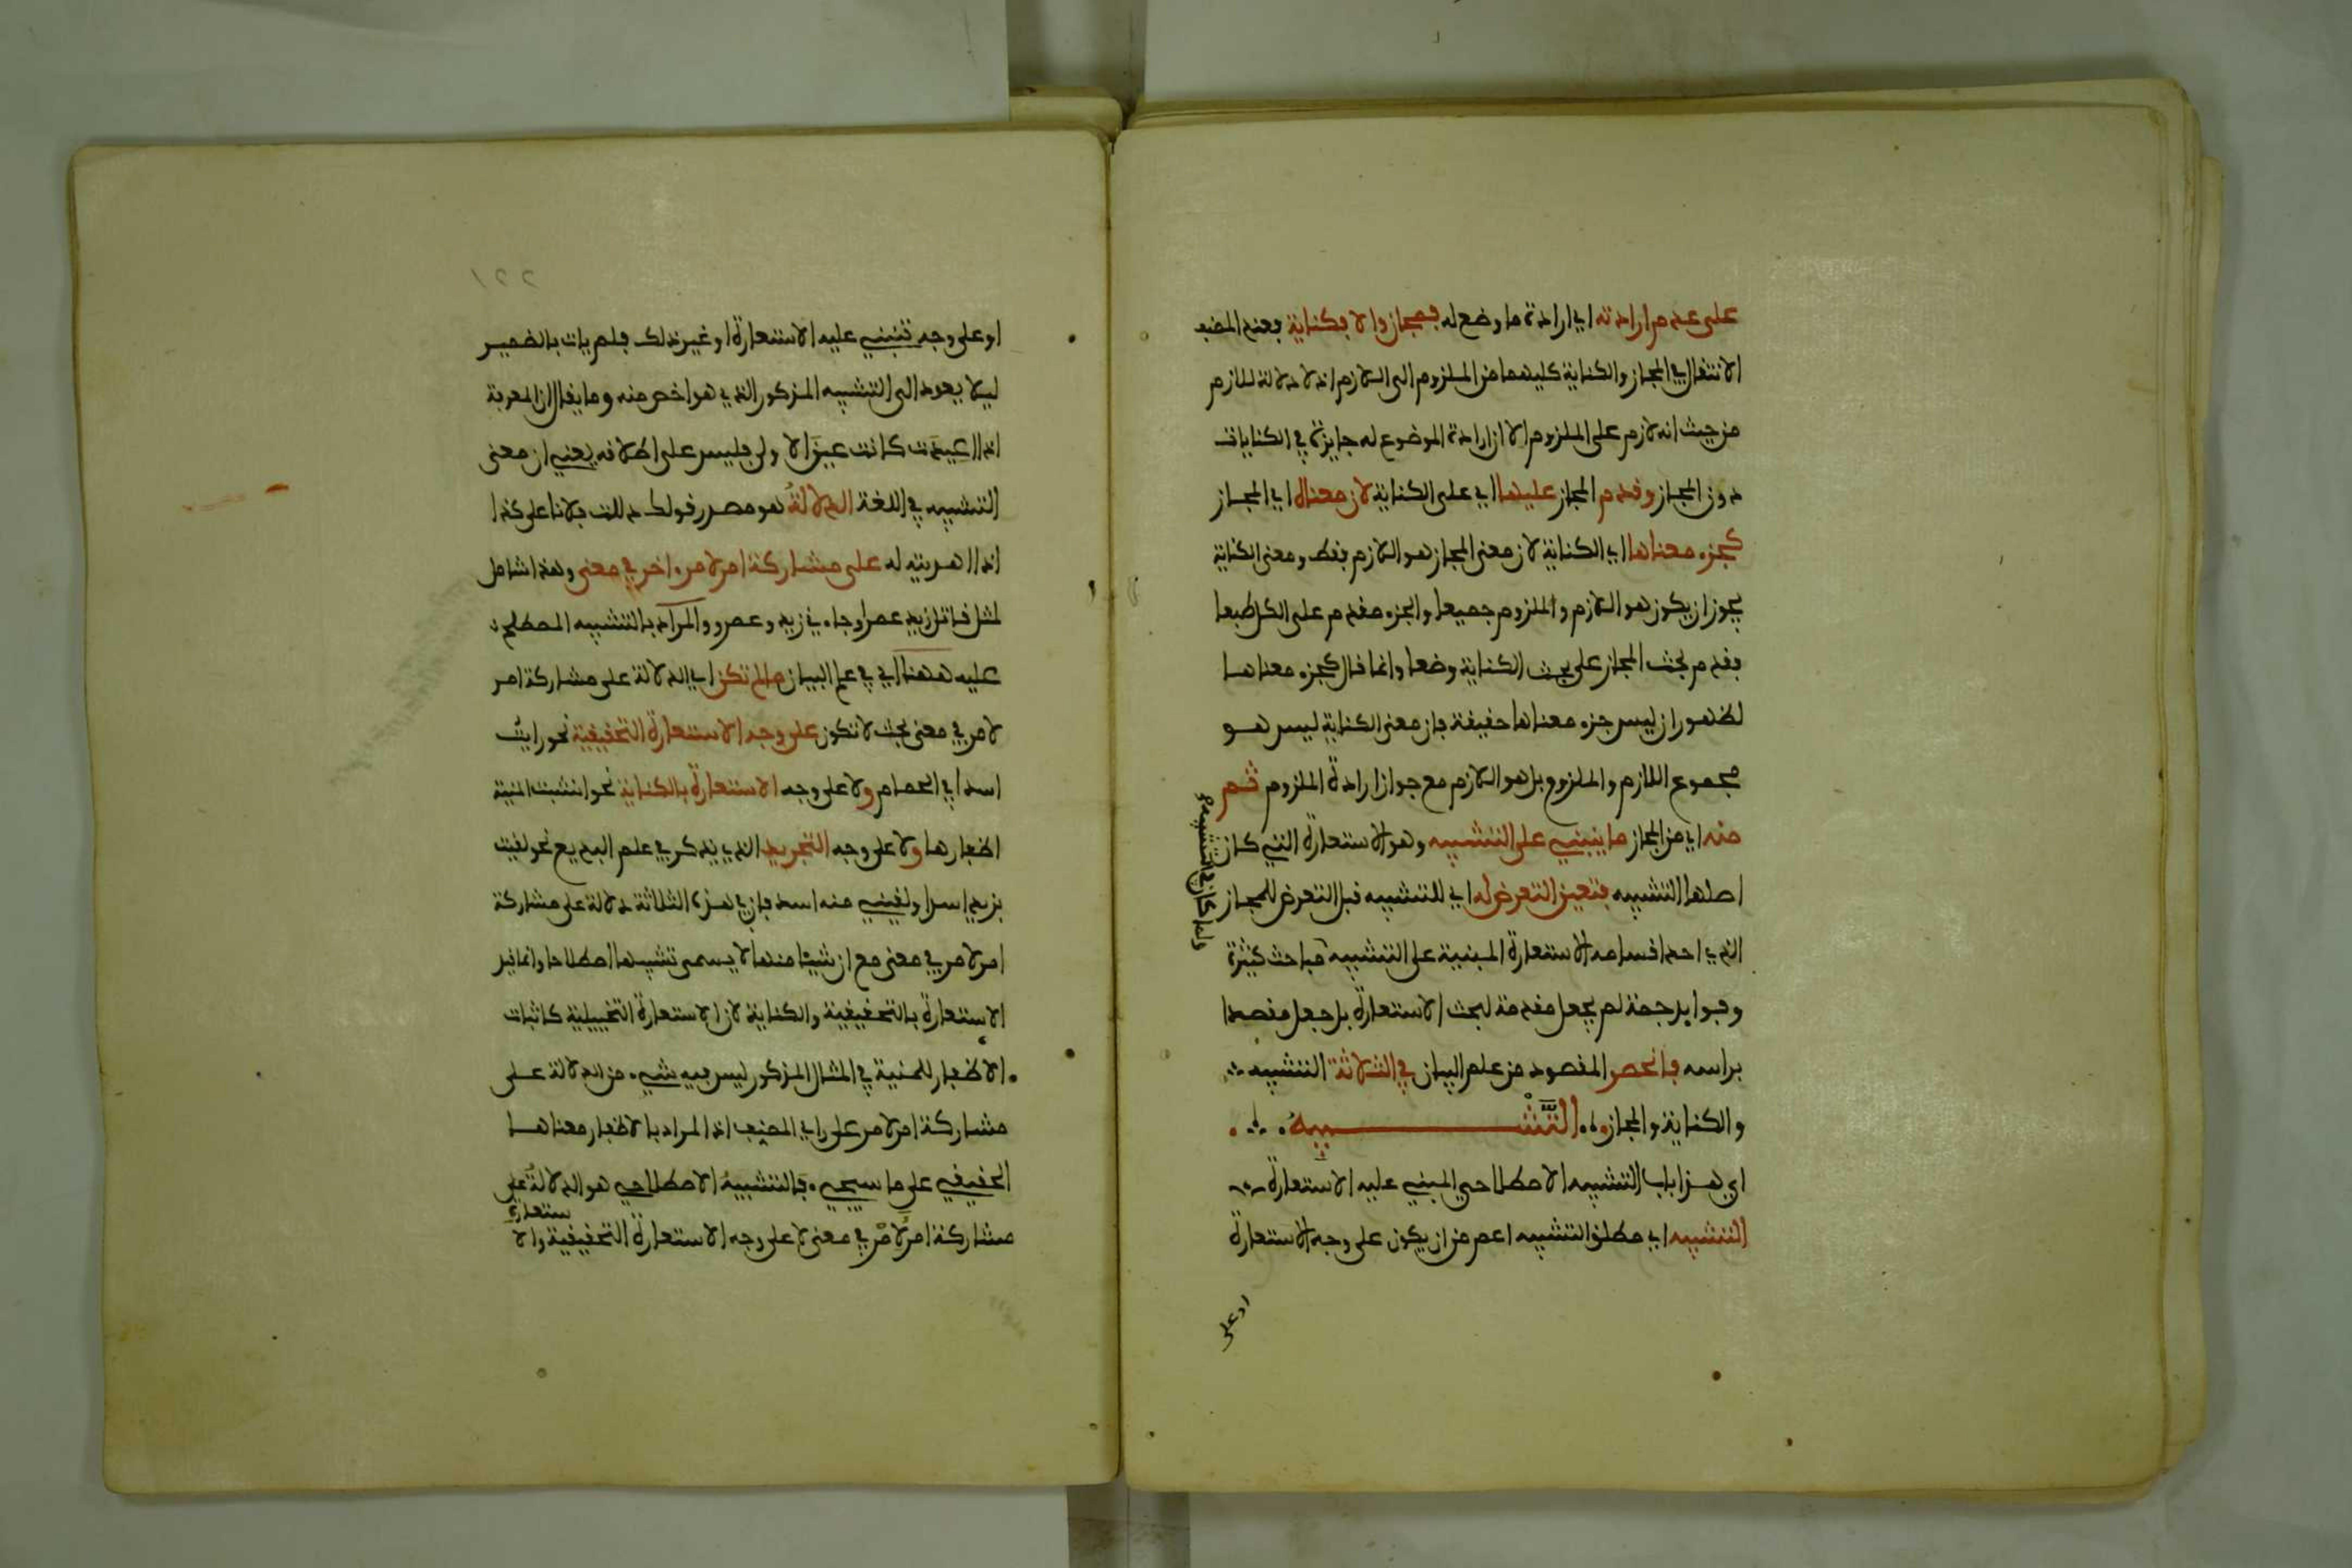 على عدم ارادته اي ارادة ما وضع له فمجاز والا فكناية فعند المصنف
الانتقال في المجاز والكناية كليهما من الملزوم الى اللازم اذ لا دلالة للازم
من حيث انه لازم على الملزوم الا ان ارادة الموضوع له جايزة في الكنايات
دون المجاز وقدم المجاز عليها اي على الكناية لان معناه اي المجاز
كجزء معناها اي الكناية لان معنى المجاز هو اللازم فقط ومعنى الكناية
يجوز ان يكون هو اللازم والملزوم جميعا والجزء مقدم على الكل طبعا
فقدم بحث المجاز على بحث الكناية وضعا وانما قال كجزء معناها
لظهور ان ليس جزء معناها حقيقة فان معنى الكناية ليس هو
مجموع اللازم والملزوم بل هو اللازم مع جواز ارادة الملزوم ثم
منه اي من المجاز ما ينبني على التشبيه وهو الاستعارة التي كان
اصلها التشبيه فتعين التعرض له اي للتشبيه قبل التعرض للمجاز
الذي احد اقسامه الاستعارة المبنية على التشبيه مباحث كثيرة
ولما كان في التشبيه
وفوايد جمة لم يجعل مقدمة لبحث الاستعارة بل جعل مقصدا
براسه فانحصر المقصود من علم البيان في الثلاثة التشبيه
والكناية والمجاز التشبيه
اي هذا باب التشبيه الاصطلاحي المبني عليه الاستعارة
التشبيه اي مطلق التشبيه اعم من ان يكون على وجه الاستعارة
او على
٢٢١
او على وجه تنبني عليه الاستعارة او غير ذلك فلم يات بالضمير
ليلا يعود الى التشبيه المذكور الذي هو اخص منه وما يقال ان المعرفة
اذا اعيدت كانت عين الاولى فليس على اطلاقه يعني ان معنى
التشبيه في اللغة الدلالة هو مصدر قولك دللت فلانا على كذا
اذا اهديته له على مشاركة امر لامر اخر في معنى وهذا شامل
لمثل قاتل زيد عمرا وجاءني زيد وعمرو والمراد بالتشبيه المصطلح
عليه ههنا اي في علم البيان ما لم تكن اي الدلالة على مشاركة امر
لامر في معنى بحيث لا تكون على وجه الاستعارة التحقيقية نحو رايت
اسدا في الحمام ولا على وجه الاستعارة بالكناية نحو انشبت المنية
اظفارها ولا على وجه التجريد الذي يذكر في علم البديع نحو لقيت
بزيد اسدا ولقيني منه اسد فان في هذه الثلاثة دلالة على مشاركة
امر لامر في معنى مع ان شيئا منها لا يسمى تشبيها اصطلاحا وانما قيد
الاستعارة بالتحقيقية والكناية لان الاستعارة التخييلية كاثبات
الاظفار للمنية في المثال المذكور ليس فيه شيء من الدلالة على
مشاركة امر لامر على راي المصنف اذ المراد بالاظفار معناها
الحقيقي على ما سيجيء فالتشبيه الاصطلاحي هو الدلالة على
مشاركة امر لامر في معنى لا على وجه الاستعارة التحقيقية والا
ستعارة